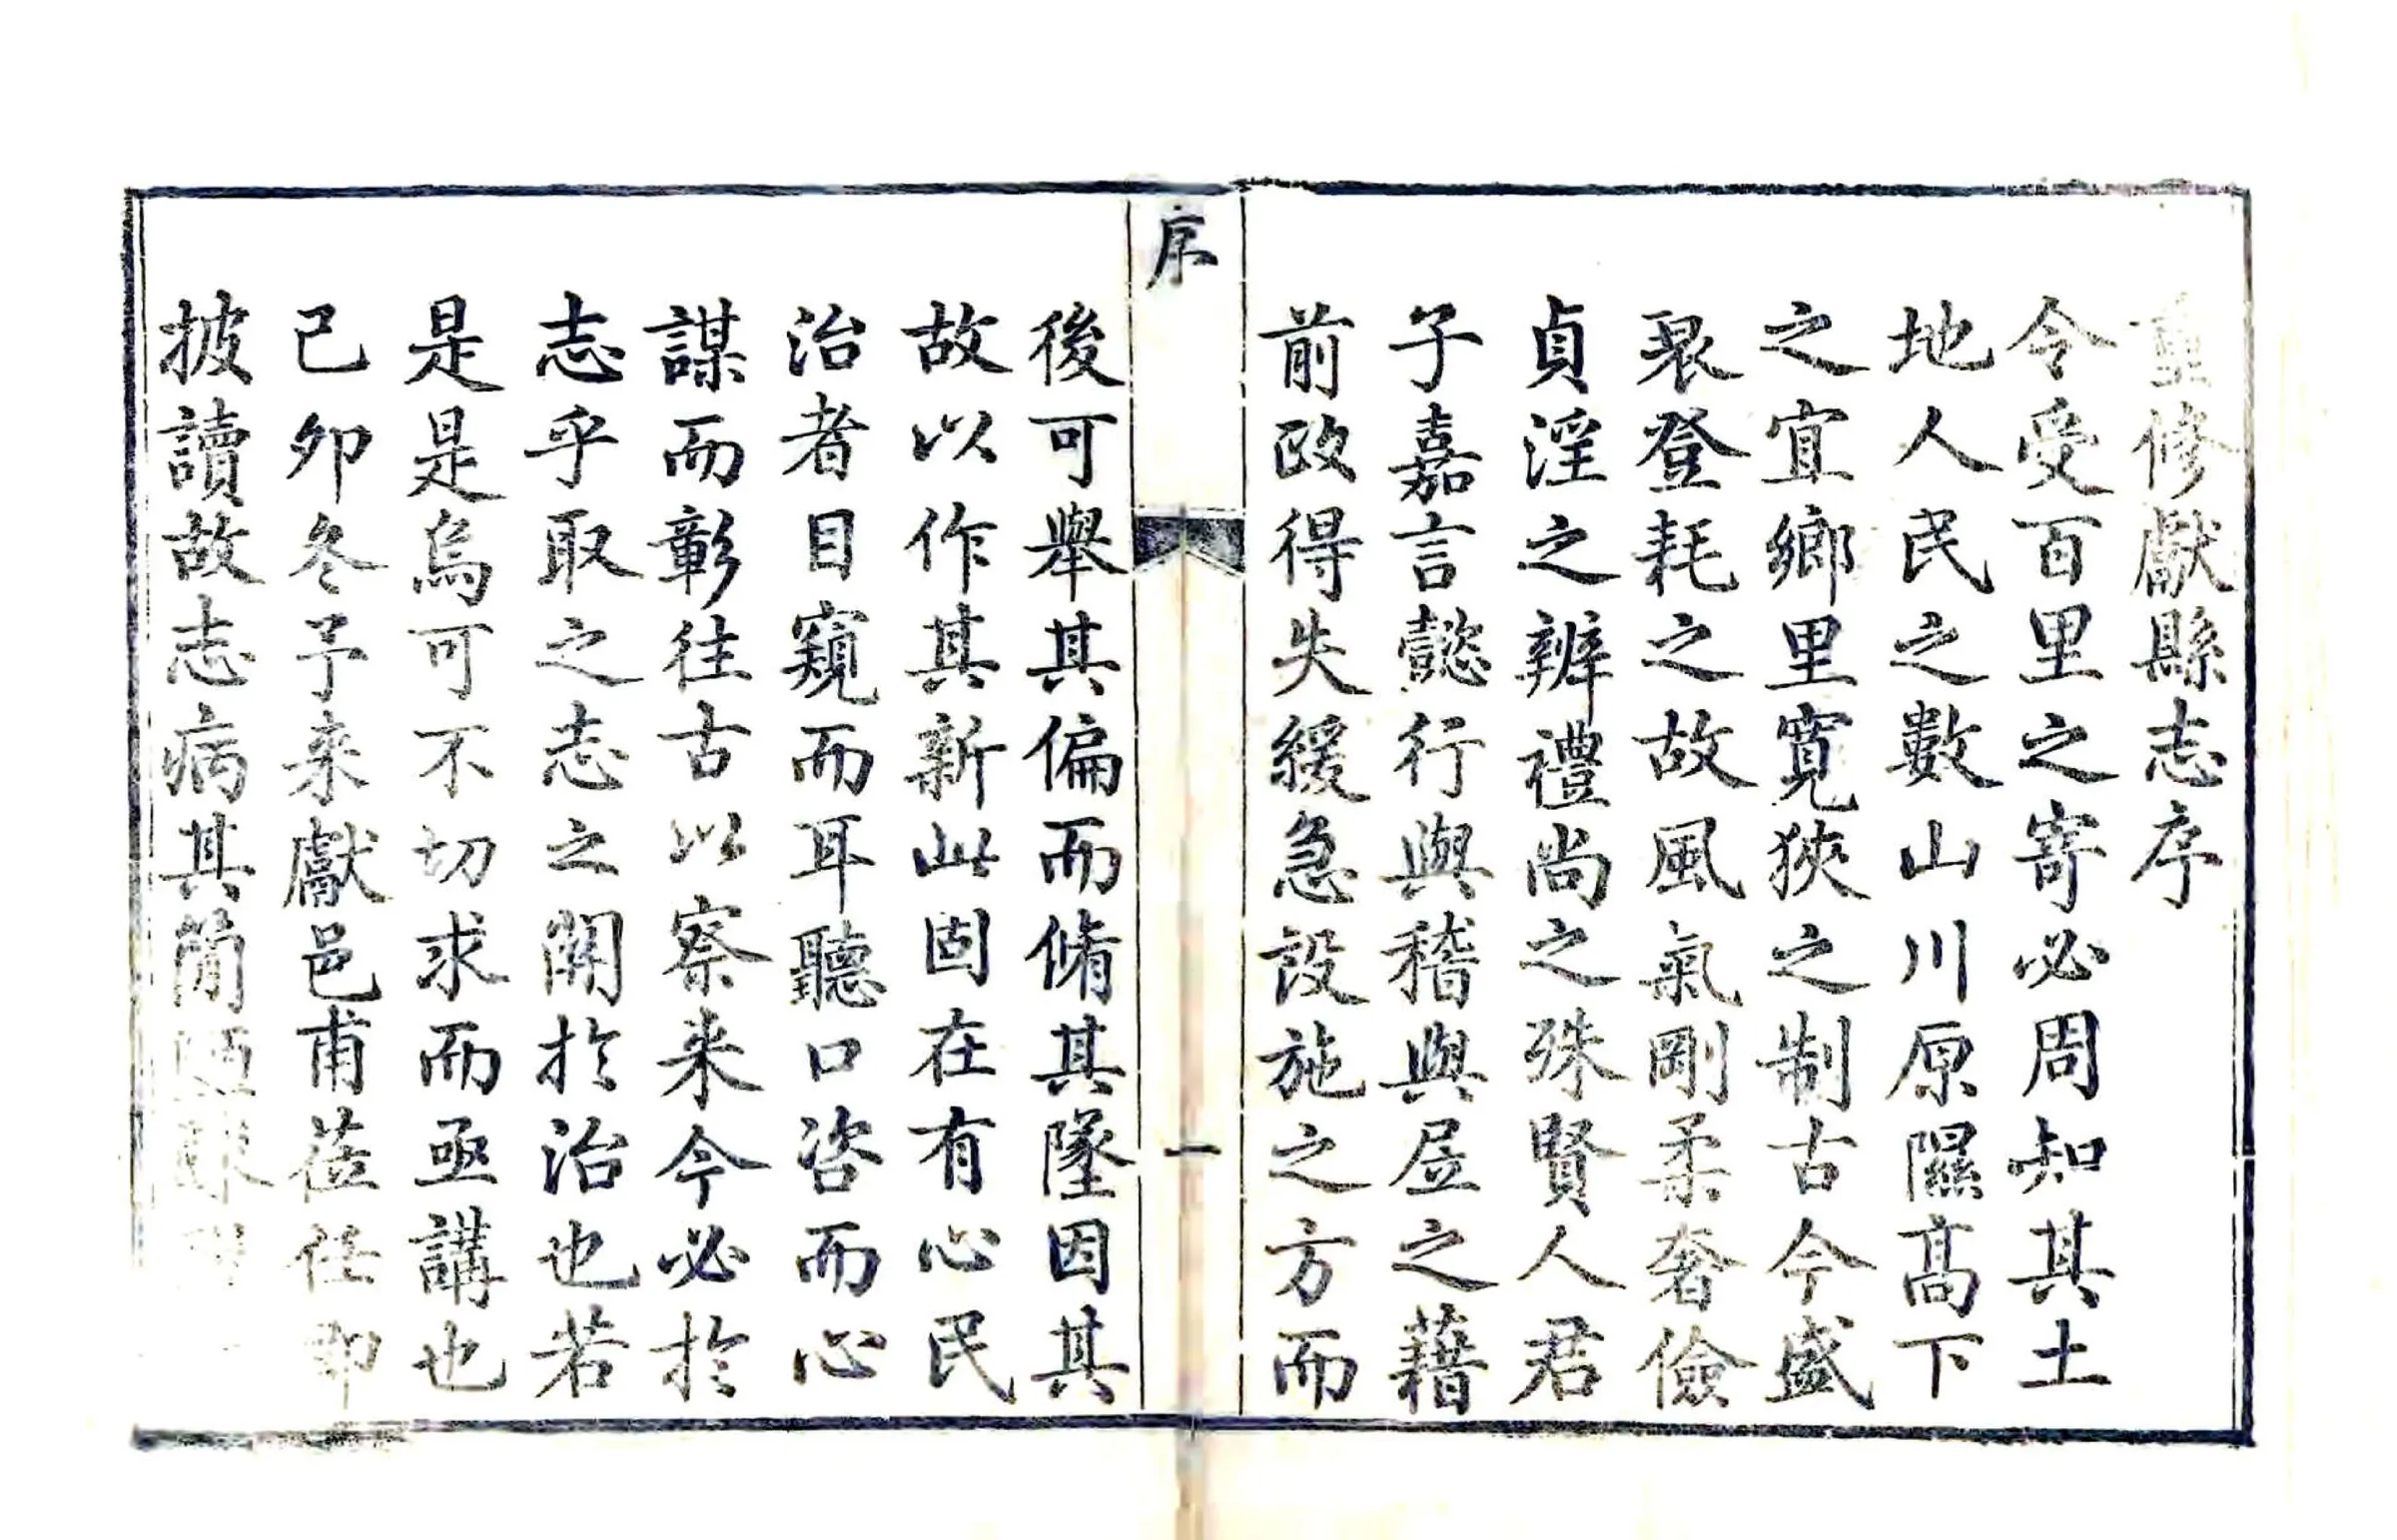 重修獻縣志序
令受百里之寄必周知其土
地人民之數山川原隰髙下
之宜鄉里寬狹之制古今盛
衰登耗之故風氣剛柔奢儉
貞淫之辨禮尚之殊賢人君
子嘉言懿行與稽與居之藉
前政得失緩急設施之方而
序
一
後可舉其偏而脩其墜因其
故以作其新此固在有心民
治者目窺而耳聽口咨而心
謀而彰往古以察来今必於
志乎取之志之關於治也若
是是烏可不切求而亟講也
已卯冬予来獻邑甫莅任即
披讀故志病其簡陋